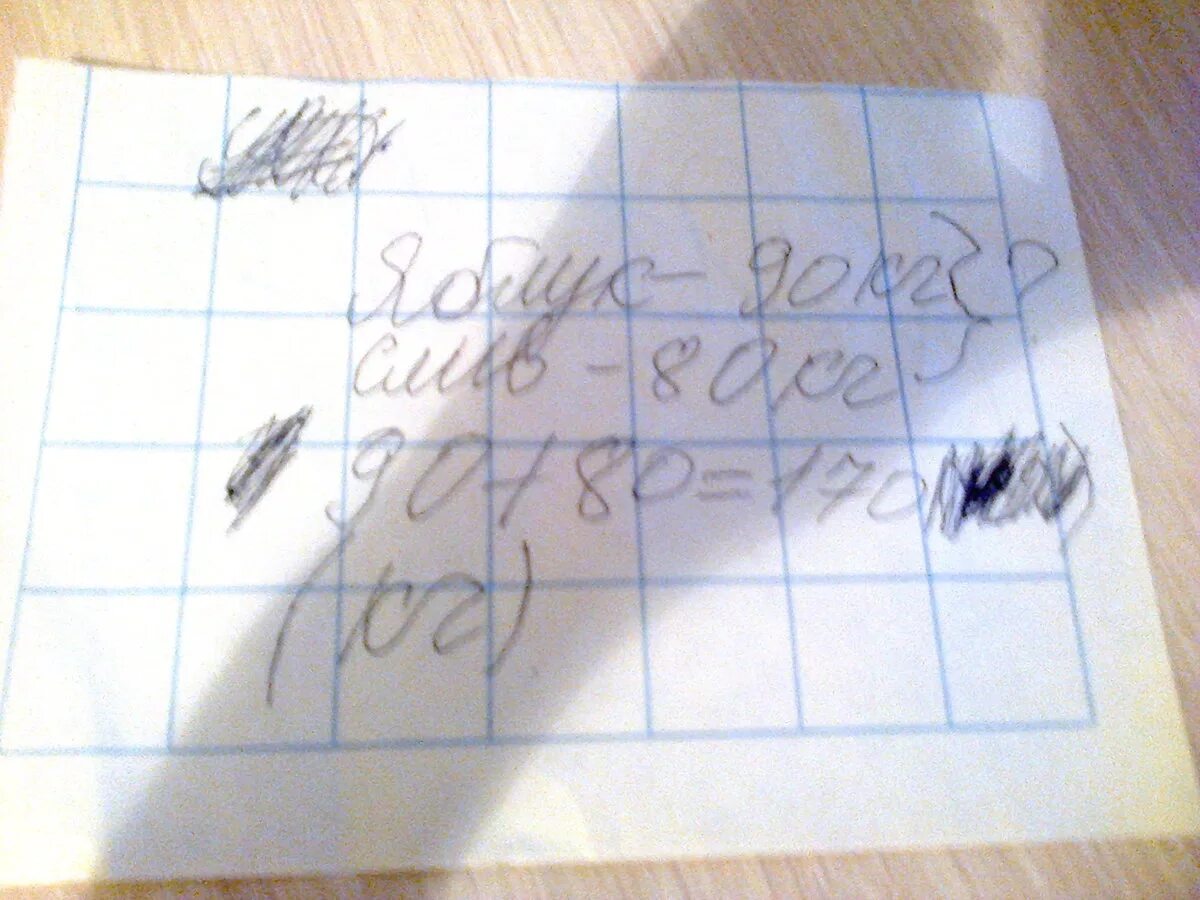 Яблук - 90 кг } ?
слив - 80 кг }
90 + 80 = 170
(кг)